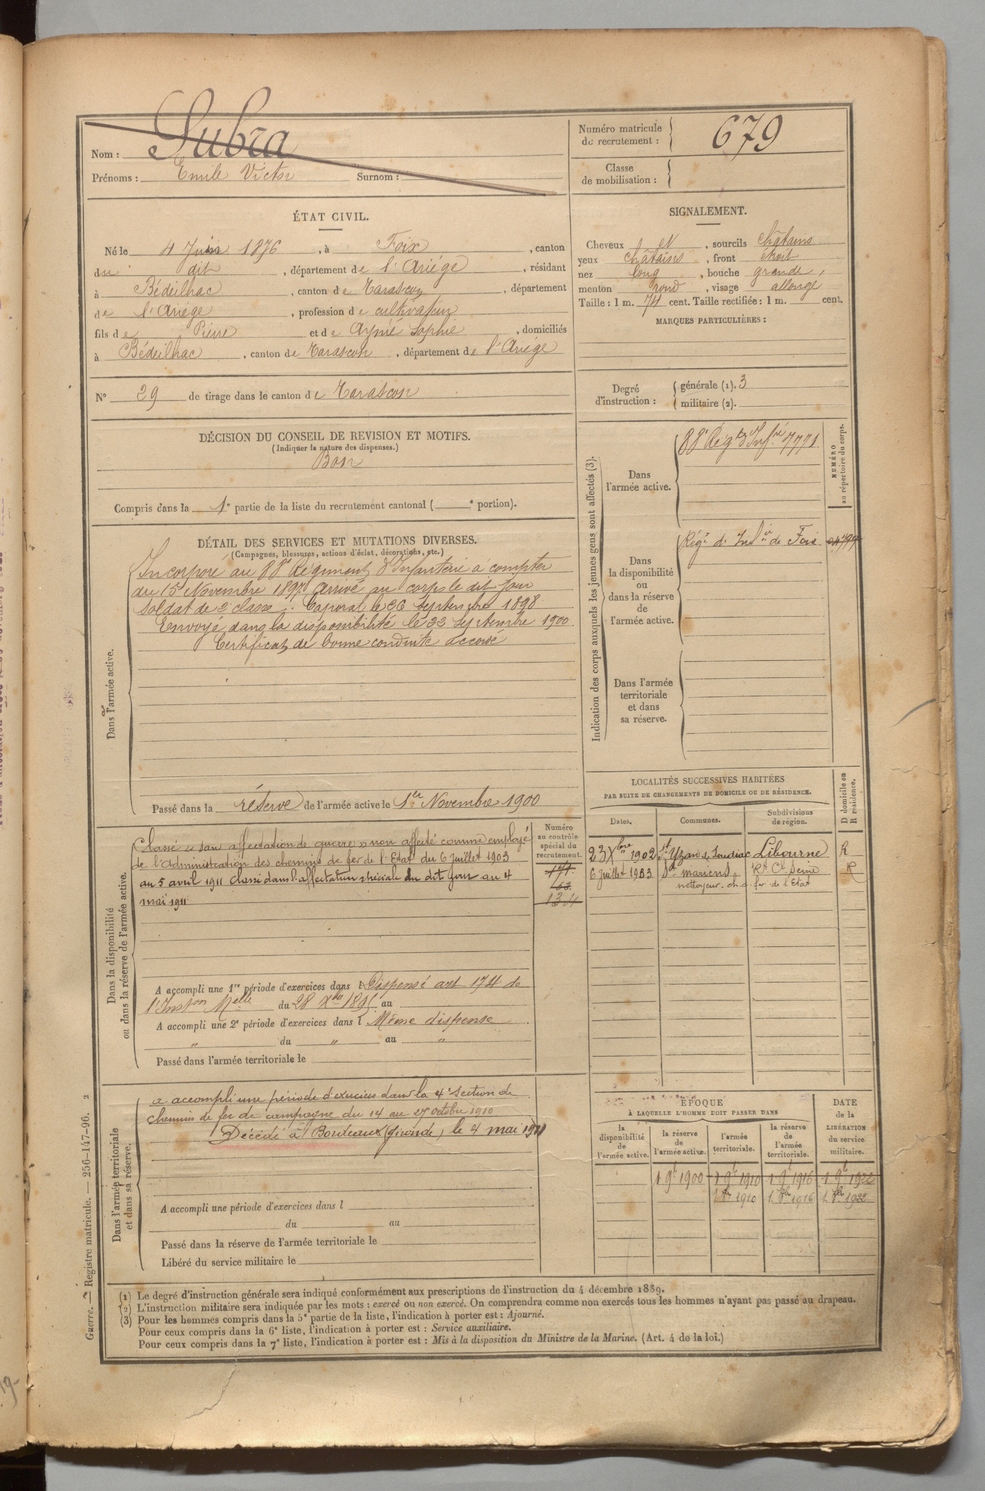 Nom : Subra
Prénoms : Emile Victor Surnom :
Numéro matricule de recrutement : 679
Classe de mobilisation :
ÉTAT CIVIL.
Né le 4 Juin 1876, à Foix, canton
du dit, département de l'Ariège, résidant
à Bédeilhac, canton de Tarascon, département
de l'Ariège, profession de cultivateur
fils de Pierre et de Aymé Sophie, domiciliés
à Bédeilhac, canton de Tarascon, département de l'Ariège
N° 29 de tirage dans le canton de Tarascon
SIGNALEMENT.
Cheveux et, sourcils châtains
yeux châtains, front étroit
nez long, bouche grande,
menton rond, visage allongé
Taille : 1 m. 74 cent. Taille rectifiée : 1 m. cent.
MARQUES PARTICULIÈRES :
Degré d'instruction : générale (1). 3
militaire (2).
DÉCISION DU CONSEIL DE REVISION ET MOTIFS.
(Indiquer la nature des dispenses.)
Bon
Compris dans la 1e partie de la liste du recrutement cantonal ( e portion).
DÉTAIL DES SERVICES ET MUTATIONS DIVERSES.
(Campagnes, blessures, actions d'éclat, décorations, etc.)
Dans l'armée active.
Incorporé au 88e Régiment d'Infanterie à compter
du 16 Novembre 1897 arrivé au corps le dit jour
soldat de 2 classe. Caporal le 23 septembre 1898
Envoyé dans la disponibilité le 23 septembre 1900
Certificat de bonne conduite accordé
Passé dans la réserve de l'armée active le 1er Novembre 1900
Indication des corps auxquels les jeunes gens sont affectés (3).
NUMÉRO au répertoire du corps.
Dans l'armée active.
88e Régt d'Infie 7771
Dans la disponibilité ou dans la réserve de l'armée active.
Régt d'Infie de Foix
Dans l'armée territoriale et dans sa réserve.
LOCALITÉS SUCCESSIVES HABITÉES
PAR SUITE DE CHANGEMENTS DE DOMICILE OU DE RÉSIDENCE.
D domicile ou R résidence.
Dates. Communes. Subdivisions de région.
23 Xbre 1902 St Yzan de Soudiac Libourne R
6 juillet 1903 St mariens. Rt Cl Seine R
nettoyeur. ch. de fer de l'Etat
Dans la disponibilité ou dans la réserve de l'armée active.
Numéro au contrôle spécial du recrutement.
Classé « sans affectation de guerre » non affecté comme employé
de l'Administration des chemins de fer de l'Etat du 6 juillet 1903
au 5 avril 1911 Classé dans l'affectation spéciale du dit jour au 4
mai 1911
A accompli une 1re période d'exercices dans l Dispensé art 174 de
l'Inston Melle du 28 Xbre 1895 au
A accompli une 2e période d'exercices dans l Même dispense
" du " au "
Passé dans l'armée territoriale le
Dans l'armée territoriale et dans sa réserve.
a accompli une période d'exercices dans la 4e section de
chemin de fer de campagne du 14 au 27 octobre 1910
Décédé à Bordeaux (Gironde) le 4 mai 1911
A accompli une période d'exercices dans l
du au
Passé dans la réserve de l'armée territoriale le
Libéré du service militaire le
ÉPOQUE
À LAQUELLE L'HOMME DOIT PASSER DANS
la disponibilité de l'armée active. la réserve de l'armée active. l'armée territoriale. la réserve de l'armée territoriale.
DATE de la LIBÉRATION du service militaire.
1 9bre 1900 1 9bre 1910 1 9bre 1916 1 9bre 1922
1 8bre 1910 1 8bre 1916 1 8bre 1922
(1) Le degré d'instruction générale sera indiqué conformément aux prescriptions de l'instruction du 4 décembre 1889.
(2) L'instruction militaire sera indiquée par les mots : exercé ou non exercé. On comprendra comme non exercés tous les hommes n'ayant pas passé au drapeau.
(3) Pour les hommes compris dans la 5e partie de la liste, l'indication à porter est : Ajourné.
Pour ceux compris dans la 6e liste, l'indication à porter est : Service auxiliaire.
Pour ceux compris dans la 7e liste, l'indication à porter est : Mis à la disposition du Ministre de la Marine. (Art. 4 de la loi.)
Guerre. — Registre matricule. — 256-147-96. 2